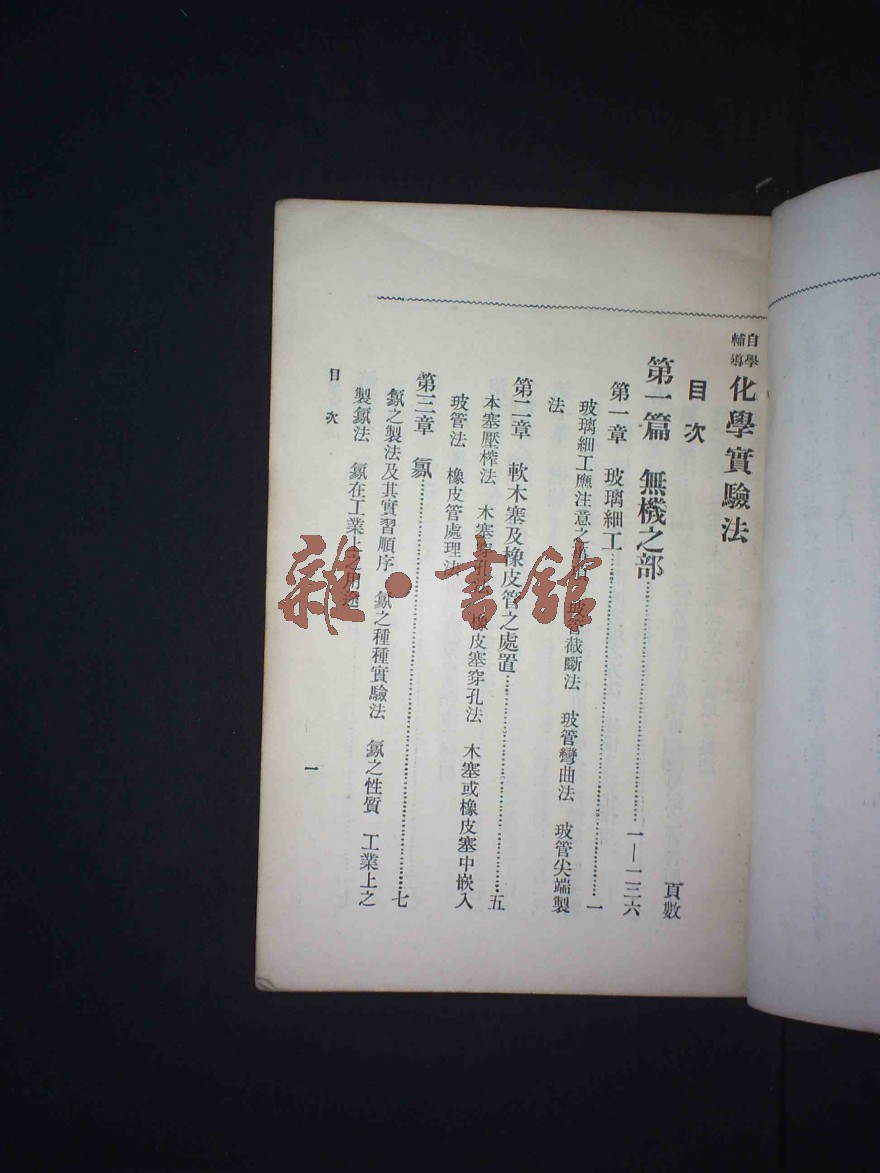 自學輔導 化學實驗法
目次
頁數
第一篇 無機之部……一—一三六
第一章 玻璃細工……一
玻璃細工應注意之 玻管截斷法 玻管彎曲法 玻管尖端製
法
第二章 軟木塞及橡皮管之處置……五
本塞壓榨法 木塞穿孔法 橡皮塞穿孔法 木塞或橡皮塞中嵌入
玻管法 橡皮管處理法
第三章 氯……七
氯之製法及其實習順序 氯之種種實驗法 氯之性質 工業上之
製氯法 氯在工業上之用途
目次
一
雜·書館